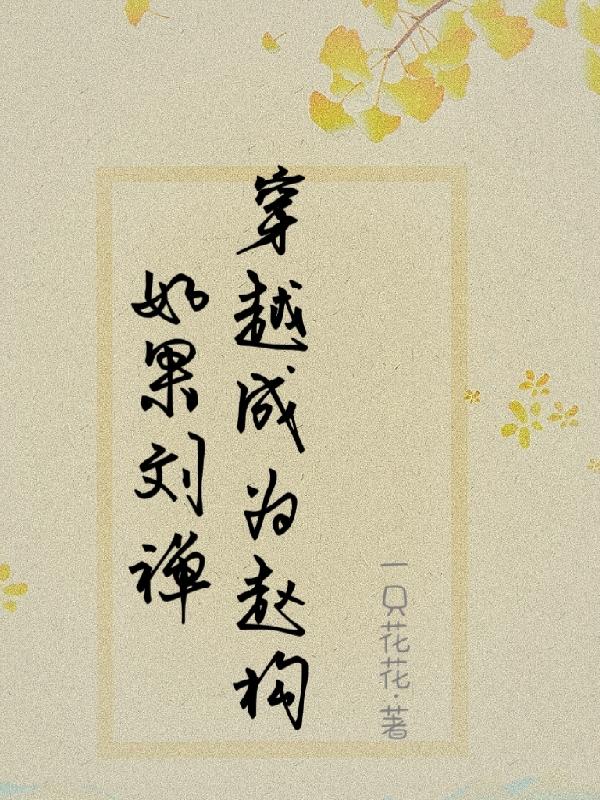 如果刘禅
穿越成为赵构
一只花花·著